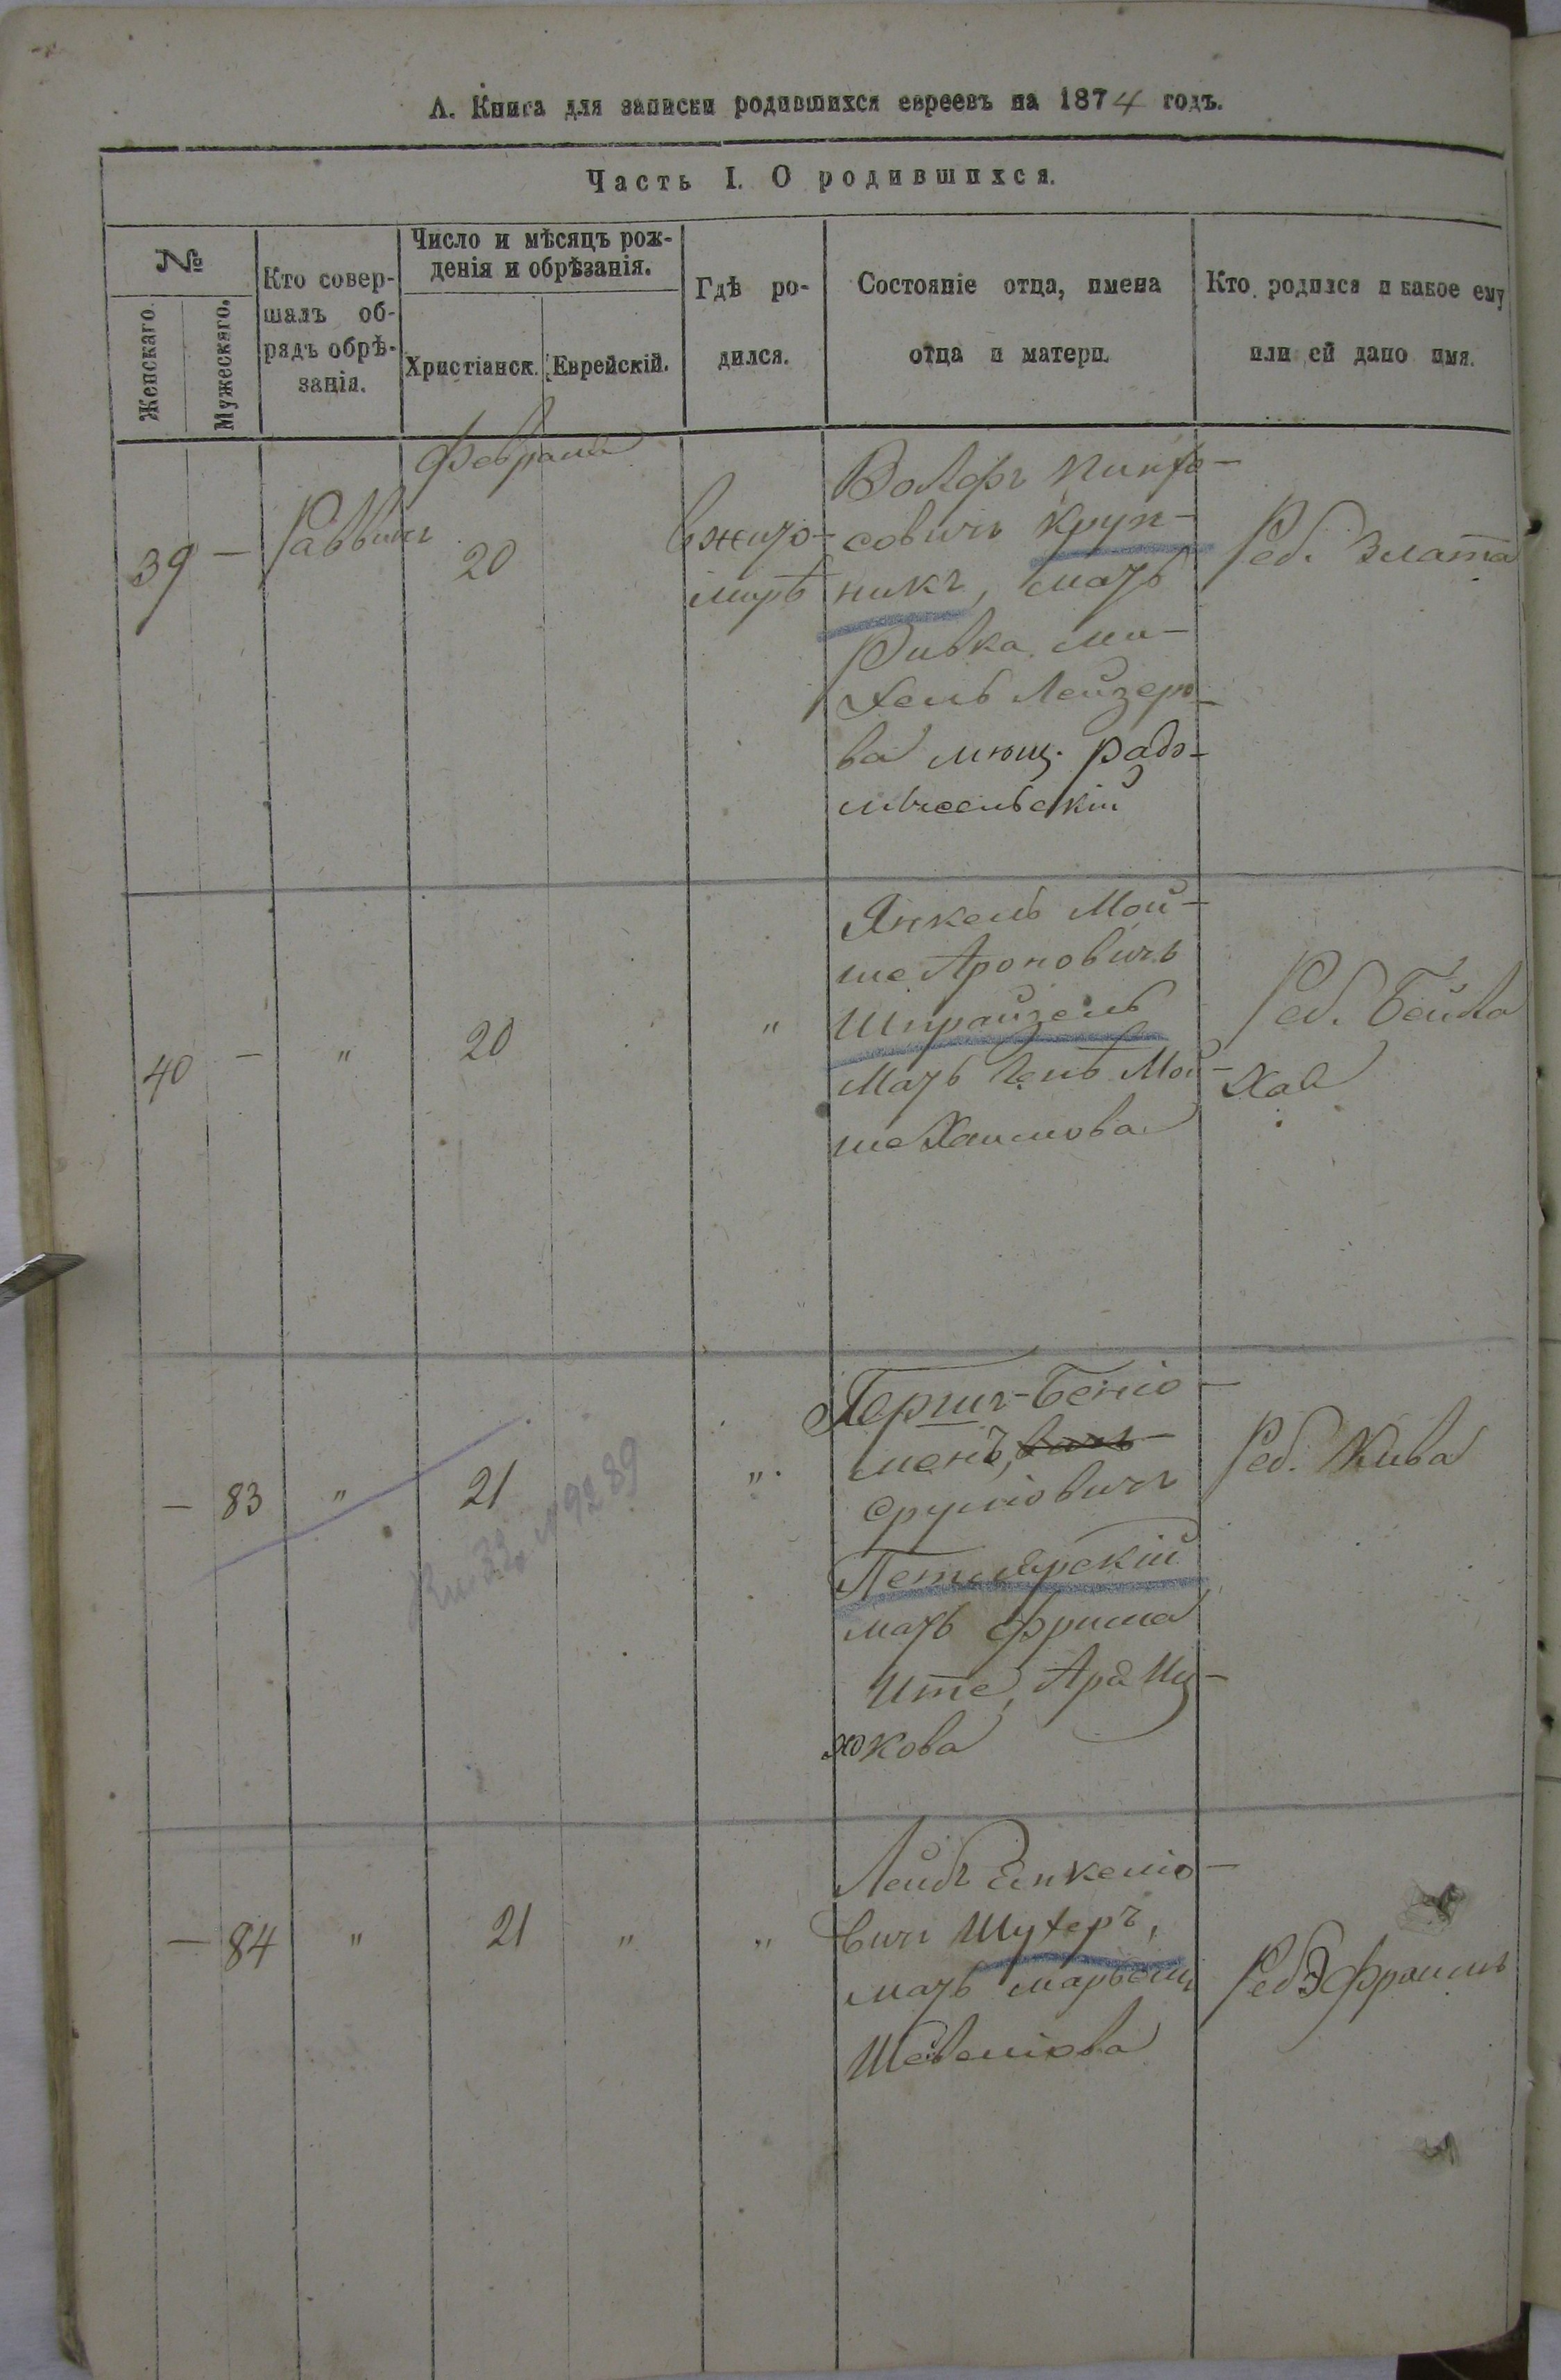 А. Книга для записки родившихся евреевъ на 1874 годъ.
Часть I. О родившихся.
№
Женскаго.
Мужескаго.
Кто совер-
шалъ об-
рядъ обрѣ-
занія.
Число и мѣсяцъ рож-
денія и обрѣзанія.
Христіанск.
Еврейскій.
Гдѣ ро-
дился.
Состояніе отца, имена
отца и матери.
Кто родился и какое ему
или ей дано имя.
Февраля
39 — Раввинъ 20
в жито-
мирѣ
Волфъ Пинхо-
совичъ Круп-
никъ, мать
Ривка Ми-
хель Лейзеро-
ва мѣщ. Радо-
мысельскій
Реб. Злата
40 — " 20 "
Янкель Мой-
ше Ароновичъ
Шпрайзель
Мать Мой-
ше Хаимова
Реб. Бейла
Хая
— 83 " 21 ".
Гершъ-Беніо-
менъ,
Сруліовичъ
мать Фрима
Ите, Иц-
кова
Реб. Жива
— 84 " 21 " "
Лейбъ Енкеліо-
вичъ Шухеръ,
мать Марьемъ
Шевеліова
Реб Эфроимъ